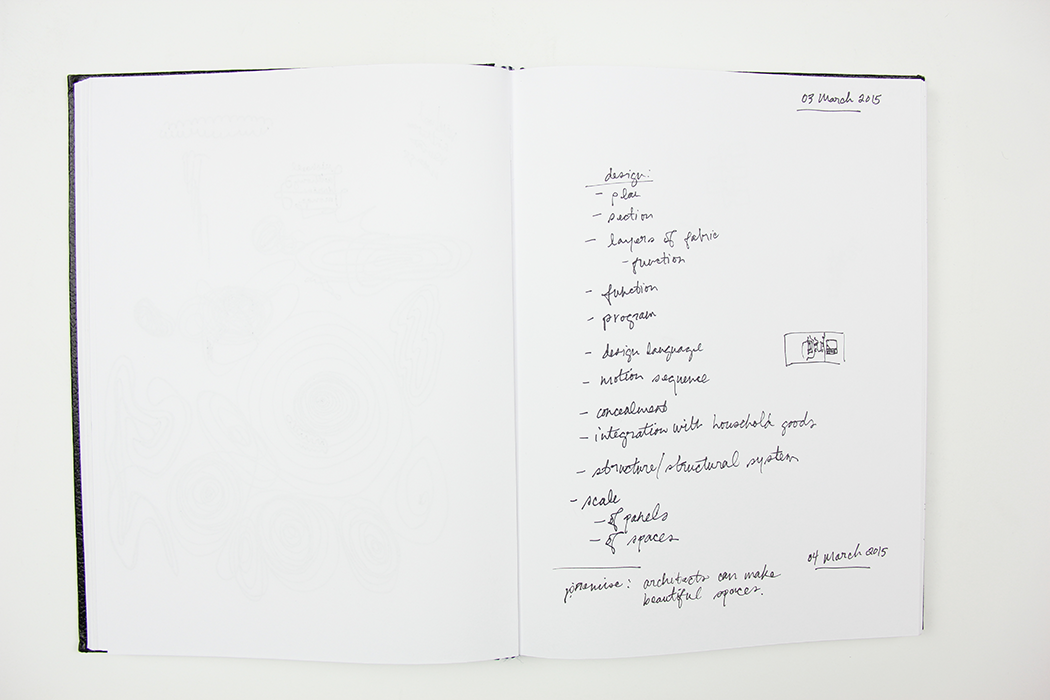 03 March 2015
design:
- plan
- section
- layers of fabric
- function
- function
- program
- design language
- motion sequence
- concealment
- integration with household goods
- structure/structural system
- scale
- of panels
- of spaces
04 March 2015
premise: architects can make
beautiful spaces.